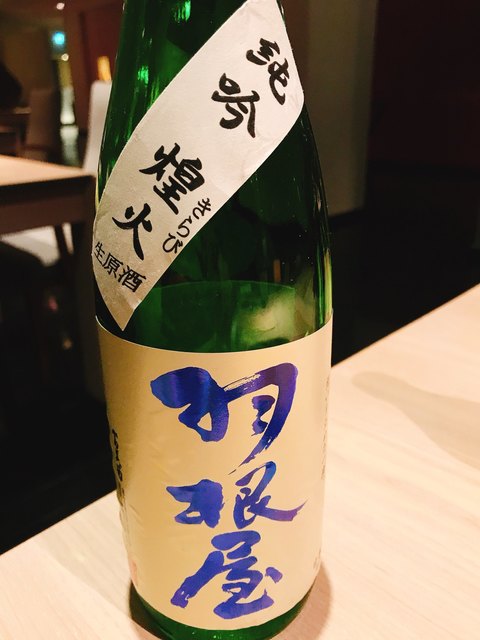 純吟
煌火
きらび
生原酒
羽根屋